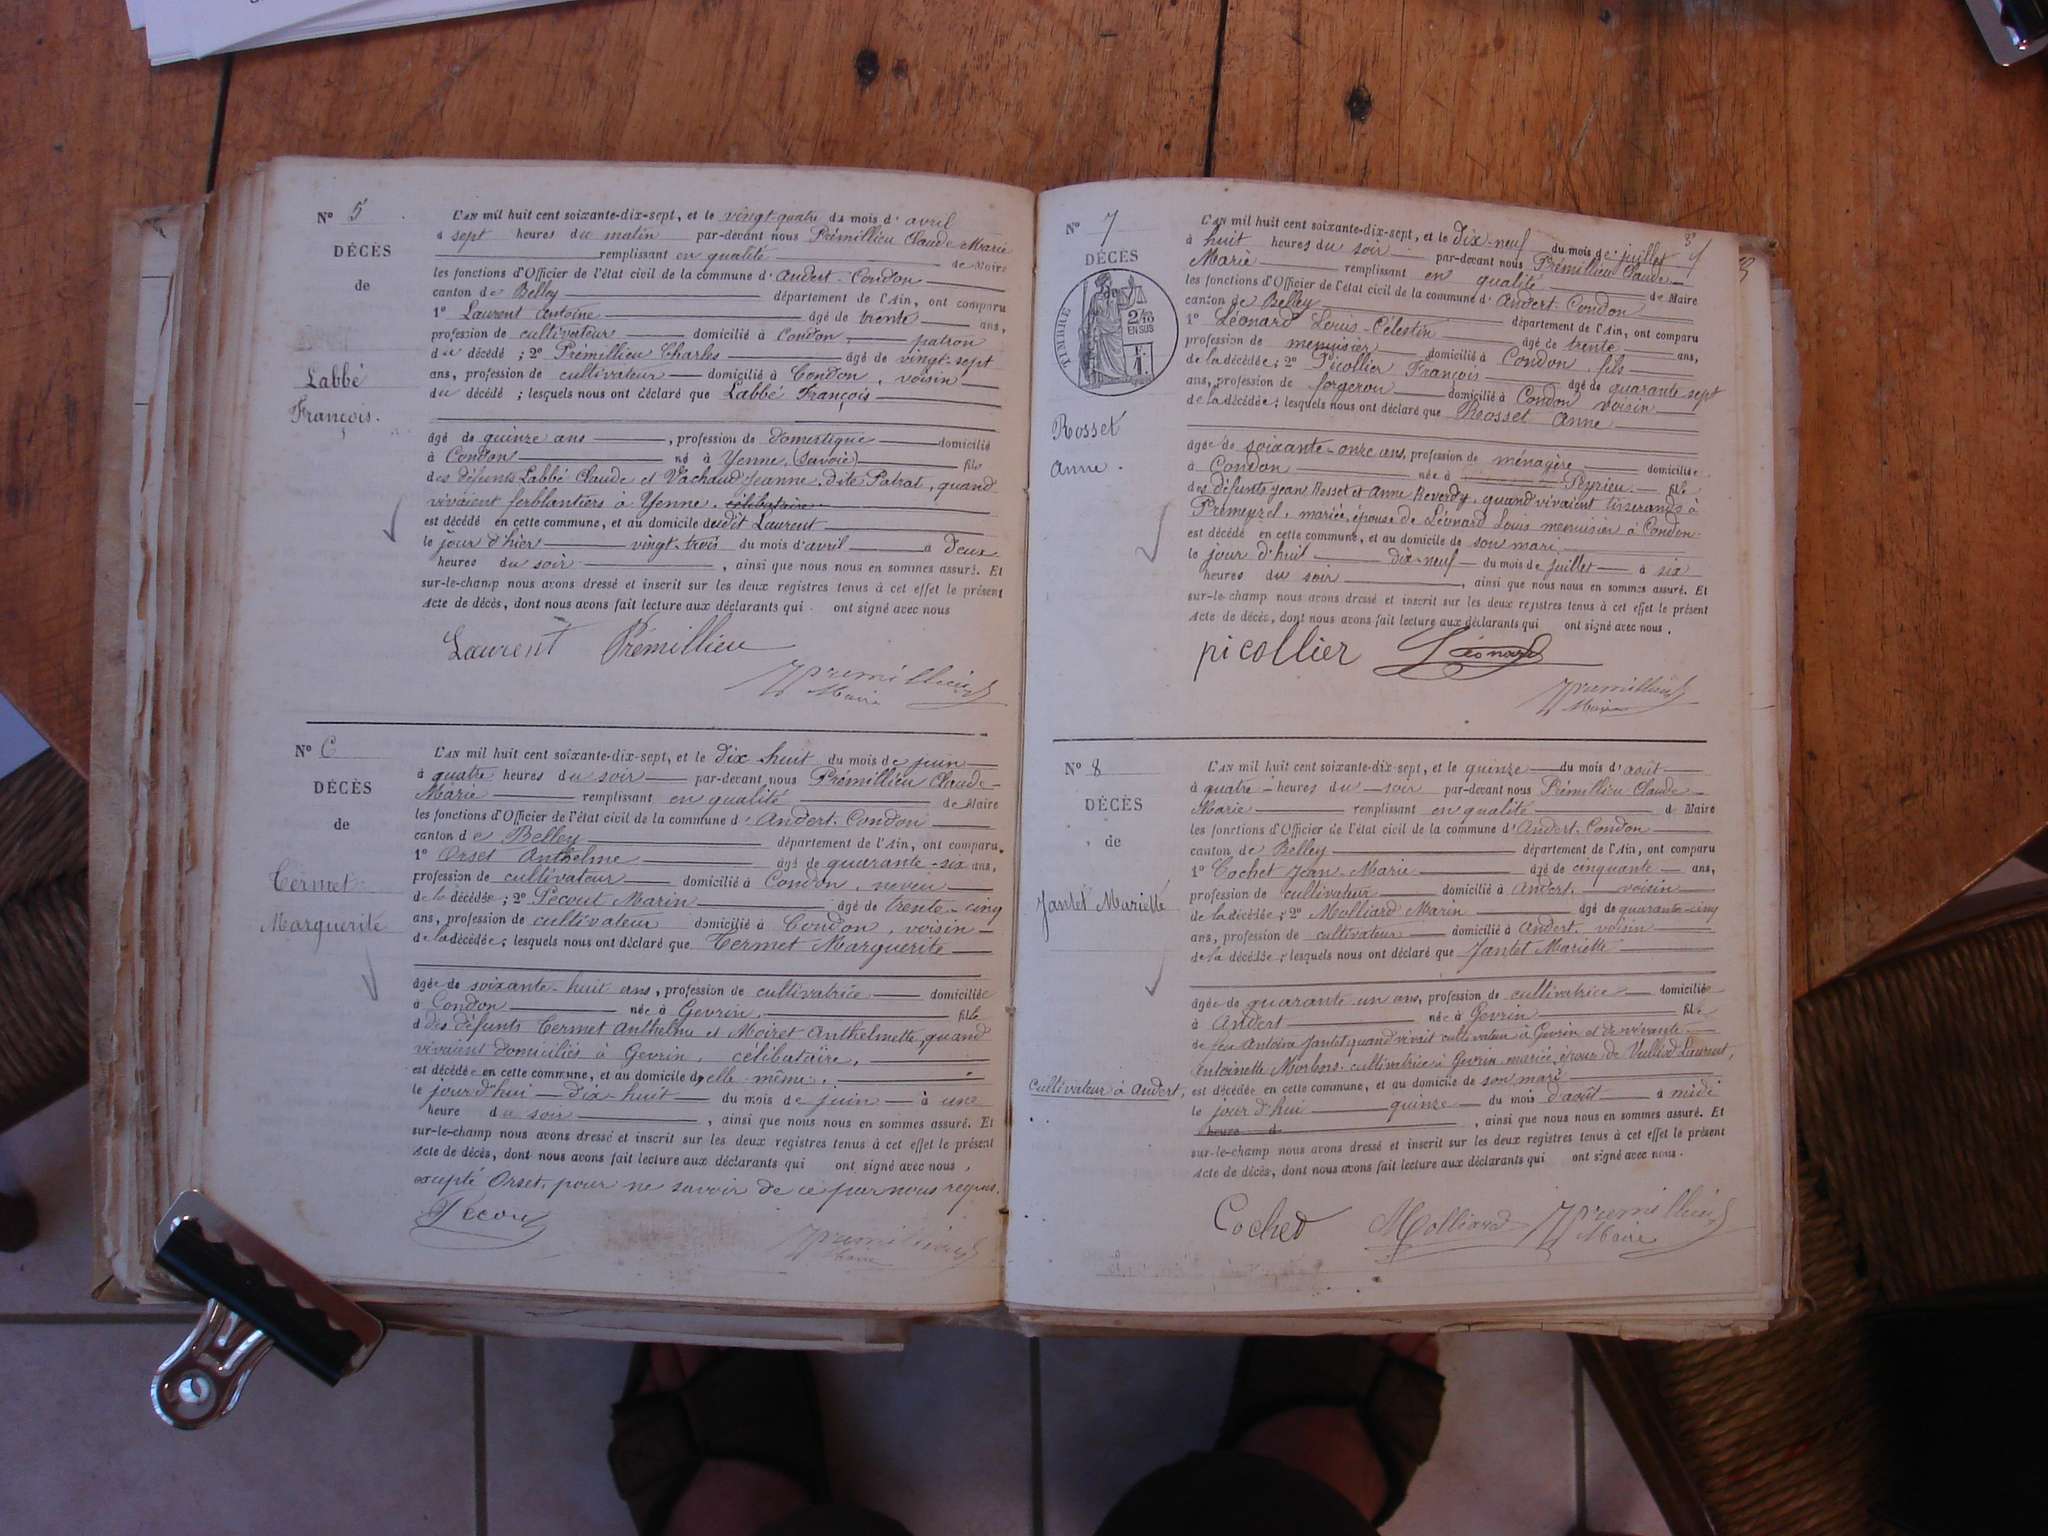 N° 5
DÉCÈS
de
Labbé
François.
L'AN mil huit cent soixante-dix-sept, et le vingt-quatre du mois d'avril
à sept heures du matin par-devant nous Prémillieu Claude Marie
remplissant en qualité de Maire
les fonctions d'Officier de l'état civil de la commune d'Andert-Condon
canton de Belley département de l'Ain, ont comparu
1° Laurent Antoine âgé de trente ans,
profession de cultivateur domicilié à Condon, patron
du décédé ; 2° Prémillieu Charles âgé de vingt-sept
ans, profession de cultivateur domicilié à Condon, voisin
du décédé ; lesquels nous ont déclaré que Labbé François
âgé de quinze ans, profession de domestique domicilié
à Condon né à Yenne (Savoie) fils
des défunts Labbé Claude et Vachaud Jeanne, dite Patrat, quand
vivaient ferblantiers à Yenne, célibataire
est décédé en cette commune, et au domicile dudit Laurent
le jour d'hier vingt-trois du mois d'avril à deux
heures du soir, ainsi que nous nous en sommes assuré. Et
sur-le-champ nous avons dressé et inscrit sur les deux registres tenus à cet effet le présent
acte de décès, dont nous avons fait lecture aux déclarants qui ont signé avec nous
Laurent Prémillieu
Premillieu
Maire
N° 6
DÉCÈS
de
Termet
Marguerite
L'AN mil huit cent soixante-dix-sept, et le dix-huit du mois de juin
à quatre heures du soir par-devant nous Prémillieu Claude
Marie remplissant en qualité de Maire
les fonctions d'Officier de l'état civil de la commune d'Andert-Condon
canton de Belley département de l'Ain, ont comparu
1° Orset Anthelme âgé de quarante-six ans,
profession de cultivateur domicilié à Condon, neveu
de la décédée ; 2° Pecout Marin âgé de trente-cinq
ans, profession de cultivateur domicilié à Condon, voisin
de la décédée ; lesquels nous ont déclaré que Termet Marguerite
âgée de soixante-huit ans, profession de cultivatrice domiciliée
à Condon née à Gevrin, fille
des défunts Termet Anthelme et Moiret Anthelmette, quand
vivaient domiciliés à Gevrin, célibataire,
est décédée en cette commune, et au domicile d'elle-même,
le jour d'hui dix-huit du mois de juin à une
heure du soir, ainsi que nous nous en sommes assuré. Et
sur-le-champ nous avons dressé et inscrit sur les deux registres tenus à cet effet le présent
acte de décès, dont nous avons fait lecture aux déclarants qui ont signé avec nous,
excepté Orset, pour ne savoir de ce par nous requis.
Pecout
Premillieu
Maire
N° 7
DÉCÈS
TIMBRE
2/10
EN SUS
Rosset
Anne.
L'AN mil huit cent soixante-dix-sept, et le dix-neuf du mois de juillet
à huit heures du soir par-devant nous Prémillieu Claude
Marie remplissant en qualité de Maire
les fonctions d'Officier de l'état civil de la commune d'Andert-Condon
canton de Belley département de l'Ain, ont comparu
1° Léonard Louis-Célestin âgé de trente ans,
profession de menuisier domicilié à Condon, fils
de la décédée ; 2° Picollier François âgé de quarante sept
ans, profession de forgeron domicilié à Condon voisin
de la décédée ; lesquels nous ont déclaré que Rosset Anne
âgée de soixante-onze ans, profession de ménagère domiciliée
à Condon née à Peyrieu fille
des défunts Jean Rosset et Anne Reverdy, quand vivaient tisserands à
Prémeyzel, mariée, épouse de Léonard Louis menuisier à Condon
est décédée en cette commune, et au domicile de son mari
le jour d'hui dix-neuf du mois de juillet à six
heures du soir, ainsi que nous nous en sommes assuré. Et
sur-le-champ nous avons dressé et inscrit sur les deux registres tenus à cet effet le présent
acte de décès, dont nous avons fait lecture aux déclarants qui ont signé avec nous.
picollier Léonard
Premillieu
Maire
N° 8
DÉCÈS
de
Jantet Mariette
L'AN mil huit cent soixante-dix-sept, et le quinze du mois d'août
à quatre heures du soir par-devant nous Prémillieu Claude
Marie remplissant en qualité d Maire
les fonctions d'Officier de l'état civil de la commune d'Andert-Condon
canton de Belley département de l'Ain, ont comparu
1° Cochet Jean-Marie âgé de cinquante ans,
profession de cultivateur domicilié à Andert, voisin
de la décédée ; 2° Molliard Marin âgé de quarante-cinq
ans, profession de cultivateur domicilié à Andert, voisin
de la décédée ; lesquels nous ont déclaré que Jantet Mariette
âgée de quarante un ans, profession de cultivatrice domiciliée
à Andert née à Gevrin fille
de feu Antoine Jantet quand vivait cultivateur à Gevrin et de vivante
Antoinette cultivatrice à Gevrin, mariée, épouse de Vulliod Laurent,
cultivateur à Andert, est décédée en cette commune, et au domicile de son mari
le jour d'hui quinze du mois d'août à midi
heure d, ainsi que nous nous en sommes assuré. Et
sur-le-champ nous avons dressé et inscrit sur les deux registres tenus à cet effet le présent
acte de décès, dont nous avons fait lecture aux déclarants qui ont signé avec nous.
Cochet Molliard Premillieu
Maire